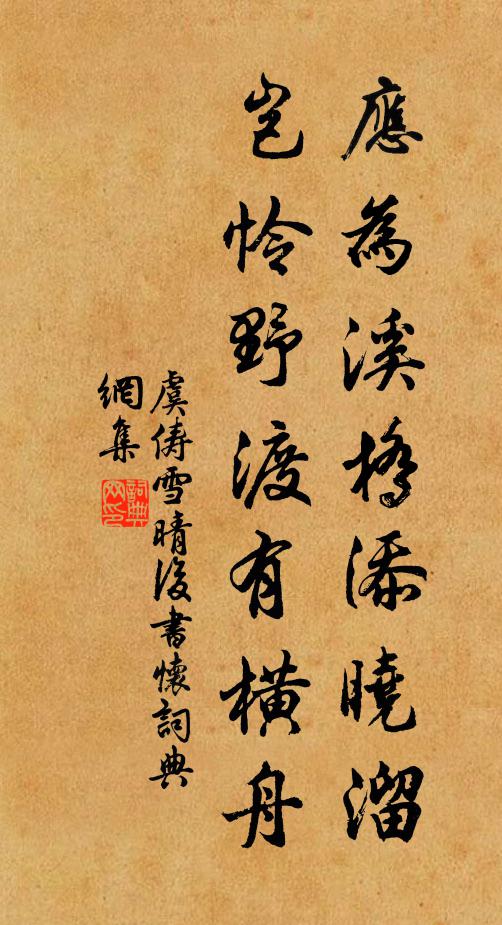 應為溪橋添曉溜
豈怜野渡有橫舟
虞儔雪晴後書懷詞典
網集
詞典
网印